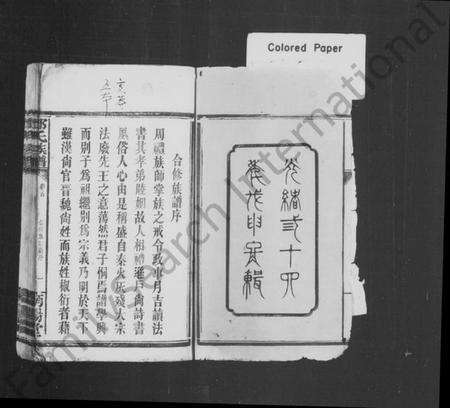 Colored Paper
光緒二十四
年戊申重輯
合修族譜序
周禮族師掌族之戒令政事月吉讀法
書其孝弟睦婣故人相禮遜戶尚詩書
風俗人心由是稱盛自秦火灰殘大宗
法廢先王之意蕩然君子惻焉講學興
而別子為祖繼別為宗義乃明於天下
難漢尚官晉魏尚姓而族姓衍者藉
FamilySearch International